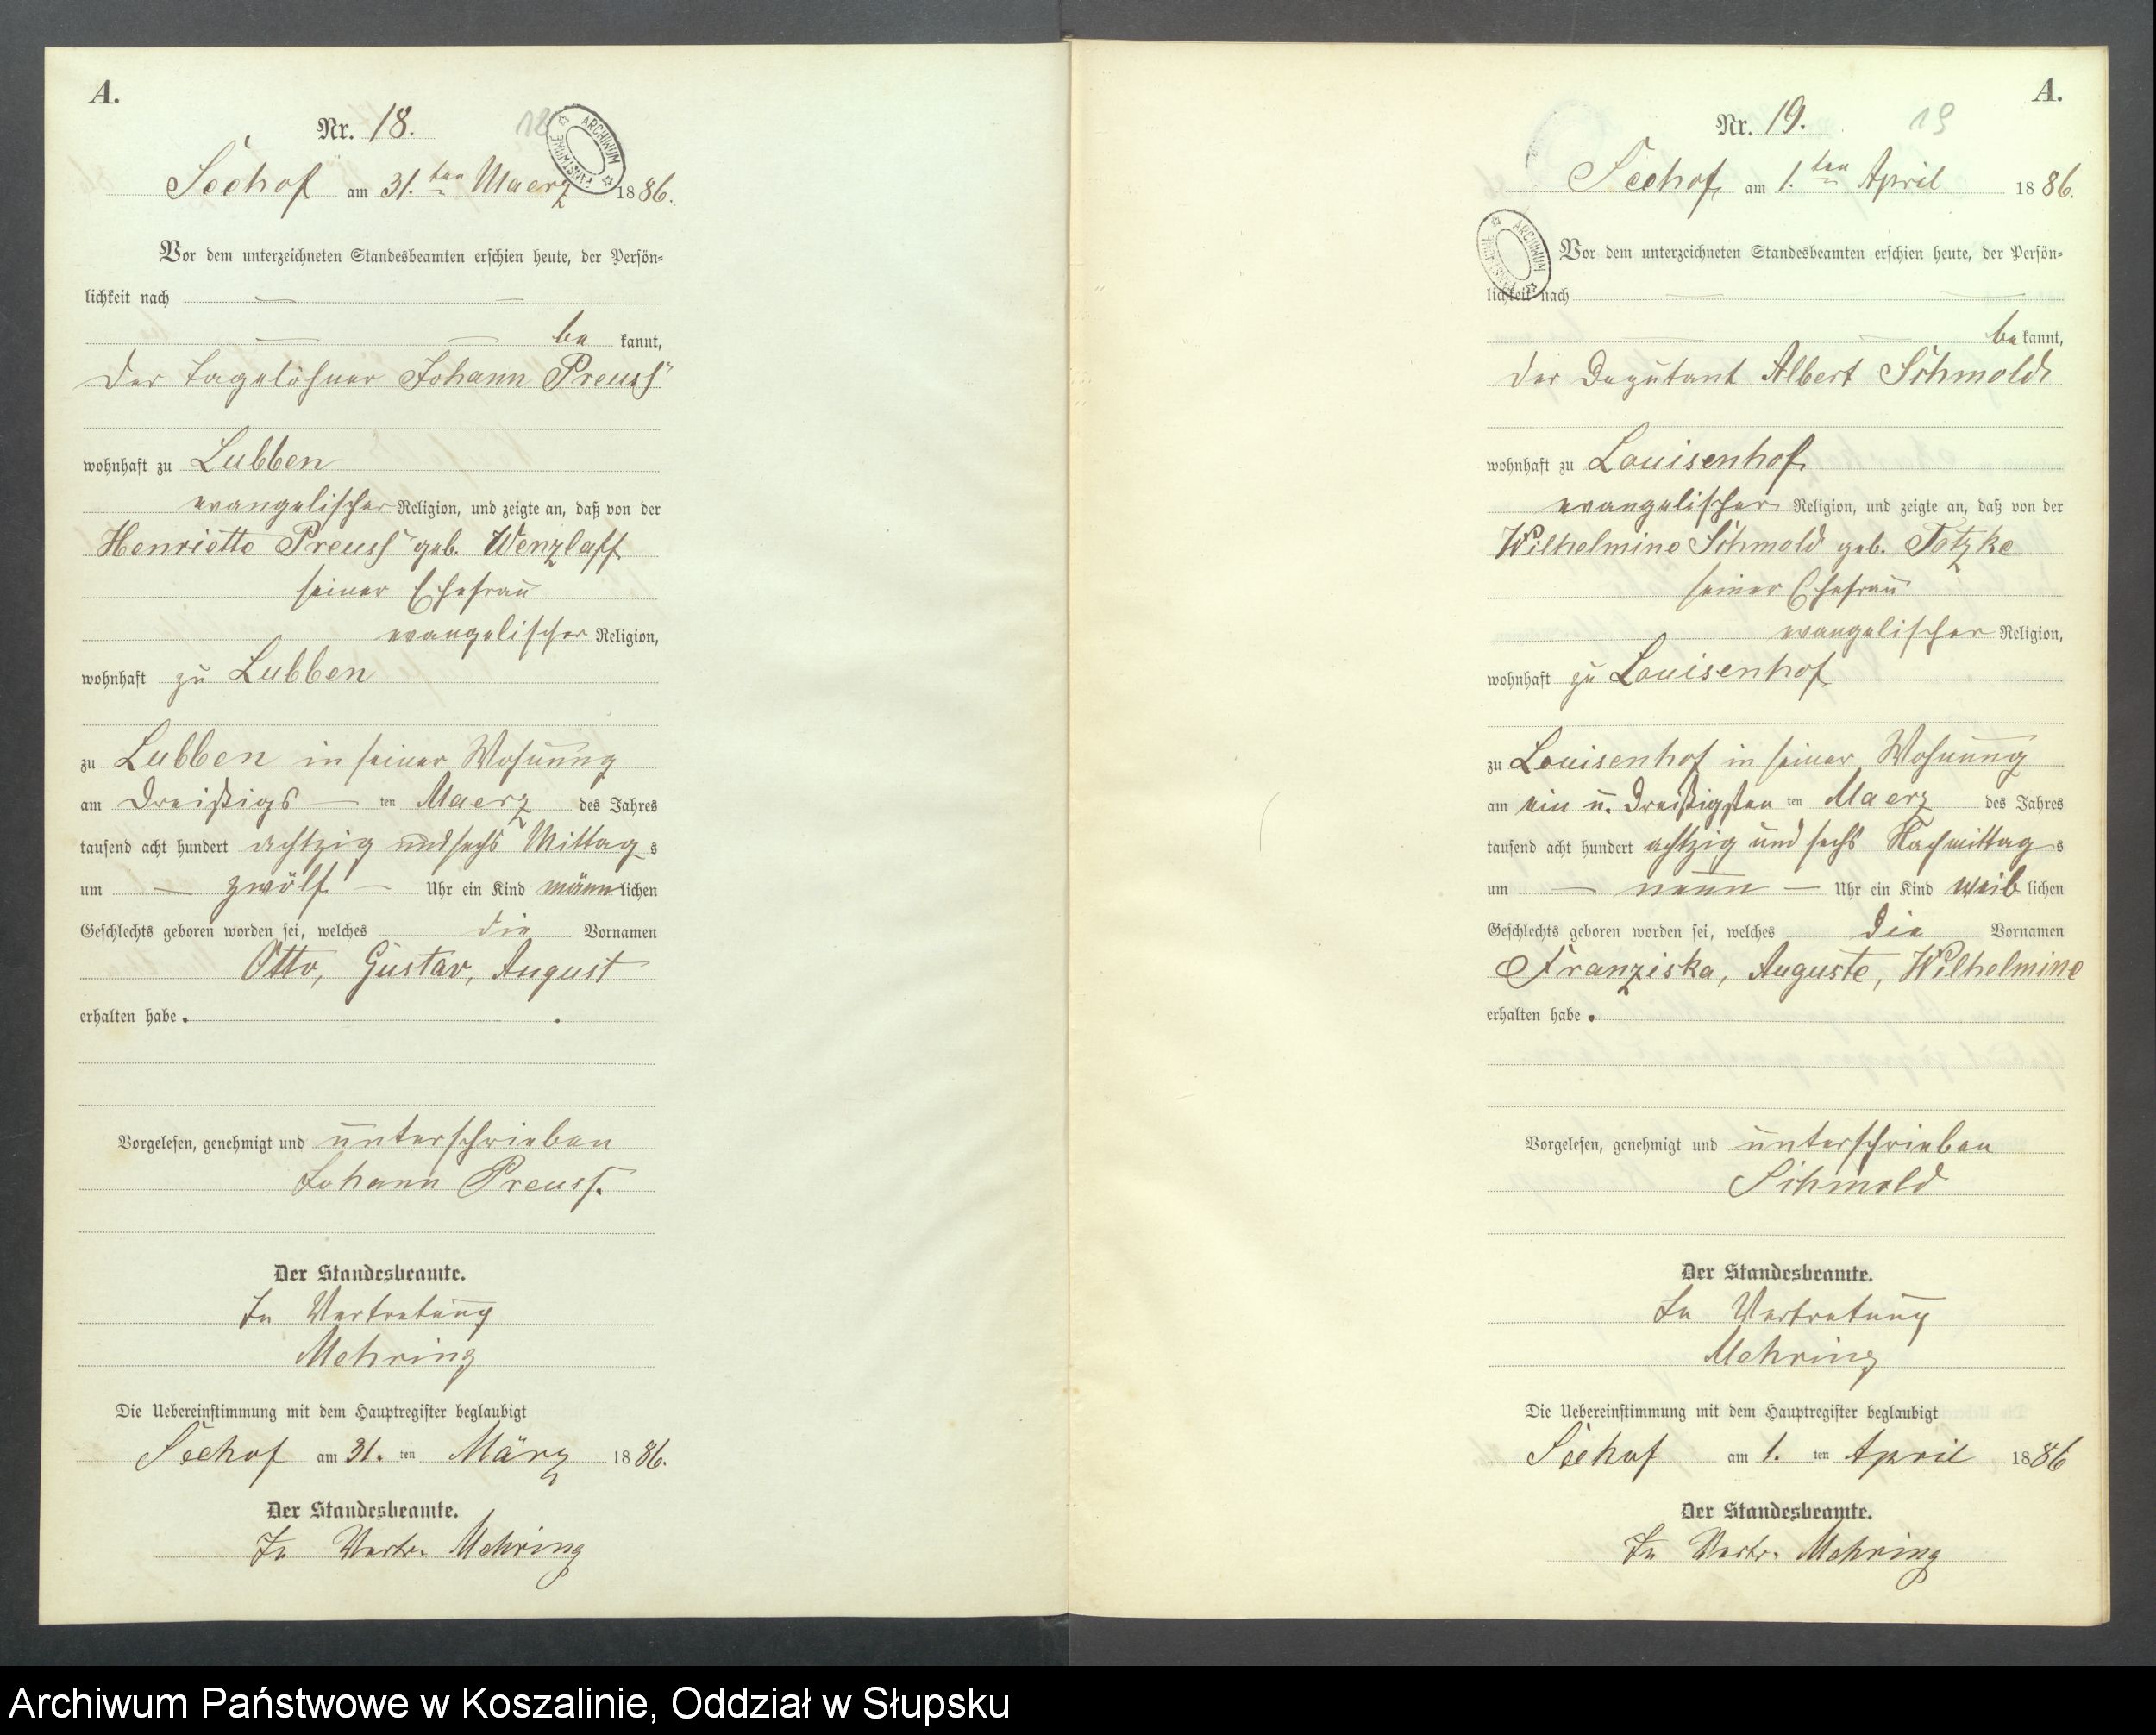 A.
Nr. 18.
18
ARCHIWUM PAŃSTWOWE
Seehof am 31.ten Maerz 1886.
Vor dem unterzeichneten Standesbeamten erschien heute, der Persön-
lichkeit nach — —
— — be kannt,
der Tagelöhner Johann Preuss
wohnhaft zu Lubben
evangelischer Religion, und zeigte an, daß von der
Henriette Preuss geb. Wenzlaff
seiner Ehefrau
evangelischer Religion,
wohnhaft zu Lubben
zu Lubben in seiner Wohnung
am dreißigs — ten Maerz des Jahres
tausend acht hundert achtzig und sechs Mittag s
um — zwölf — Uhr ein Kind männlichen
Geschlechts geboren worden sei, welches die Vornamen
Otto, Gustav, August
erhalten habe.
Vorgelesen, genehmigt und unterschrieben
Johann Preuss.
Der Standesbeamte.
In Vertretung
Mehring
Die Uebereinstimmung mit dem Hauptregister beglaubigt
Seehof am 31. ten März 1886.
Der Standesbeamte.
In Vertr. Mehring
A.
Nr. 19.
19
Seehof am 1.ten April 1886.
ARCHIWUM PAŃSTWOWE
Vor dem unterzeichneten Standesbeamten erschien heute, der Persön-
lichkeit nach — —
— — be kannt,
der Deputant Albert Schmold
wohnhaft zu Louisenhof
evangelischer Religion, und zeigte an, daß von der
Wilhelmine Schmold geb. Totzke
seiner Ehefrau
evangelischer Religion,
wohnhaft zu Louisenhof
zu Louisenhof in seiner Wohnung
am ein u. dreißigsten ten Maerz des Jahres
tausend acht hundert achtzig und sechs Nachmittag s
um — neun — Uhr ein Kind weib lichen
Geschlechts geboren worden sei, welches die Vornamen
Franziska, Auguste, Wilhelmine
erhalten habe.
Vorgelesen, genehmigt und unterschrieben
Schmold
Der Standesbeamte.
In Vertretung
Mehring
Die Uebereinstimmung mit dem Hauptregister beglaubigt
Seehof am 1. ten April 1886
Der Standesbeamte.
In Vertr. Mehring
Archiwum Państwowe w Koszalinie, Oddział w Słupsku